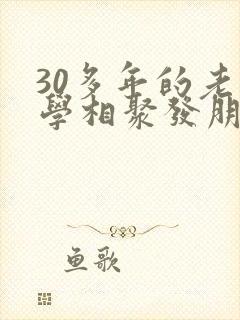 30多年的老
學相聚發朋
鱼歌